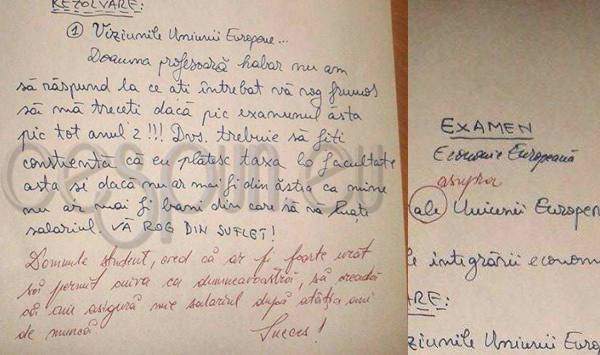 REZOLVARE:
① Viziunile Uniunii Europene...
Doamna profesoară habar nu am
să răspund la ce ati întrebat vă rog frumos
să mă treceti dacă pic examenul ăsta
pic tot anul 2 !!! Dvs. trebuie să fiti
constientă că eu plătesc taxa la facultate
asta si dacă nu ar mai fi din ăstia ca mine
nu ar mai fi bani din care să vă luați
salariul VĂ ROG DIN SUFLET!
Domnule student, cred că ar fi foarte urat
să permit cuiva ca dumneavoastră, să creadă
că îmi asigură mie salariul după atâția ani
de muncă.
Succes!
cespun.eu
EXAMEN
Economie Europeană
asupra
ale Uniunii Europen
le integrării econom
ARE:
Viziunile Uniunii Europ